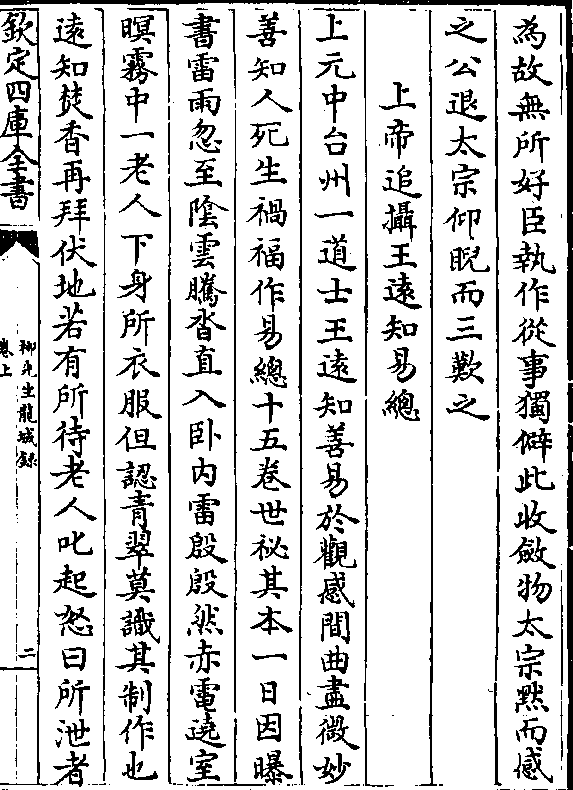 為故無所好臣執作從事獨僻此收斂物太宗黙而感
之公退太宗仰睨而三歎之
上帝追攝王逺知易總
上元中台州一道士王逺知善易於觀感間曲盡微妙
善知人死生禍福作易總十五卷世祕其本一日因曝
書雷雨忽至陰雲騰沓直入卧内雷殷殷然赤電遶室
暝霧中一老人下身所衣服但認青翠莫識其制作也
逺知焚香再拜伏地若有所待老人叱起怒曰所泄者
欽定四庫全書
柳先生龍城録
卷上
二